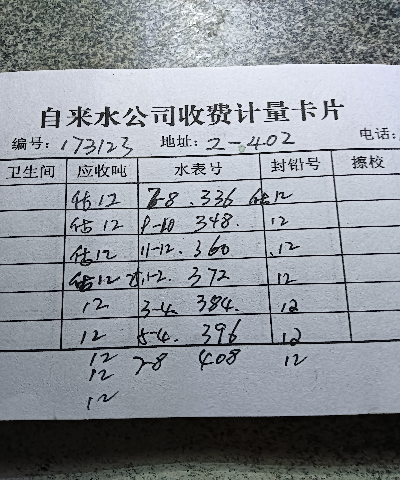 自来水公司收费计量卡片
编号: 173123 地址: 2-402 电话:
卫生间 应收吨 水表号 封铅号 擦校
估12 7-8. 336 估12
估12 9-10 348. 12
估12 11-12. 360 .12
估12 1-2. 372 12
12 3-4. 384. 12
12 5-6. 396 12
12 7-8 408 12
12
12